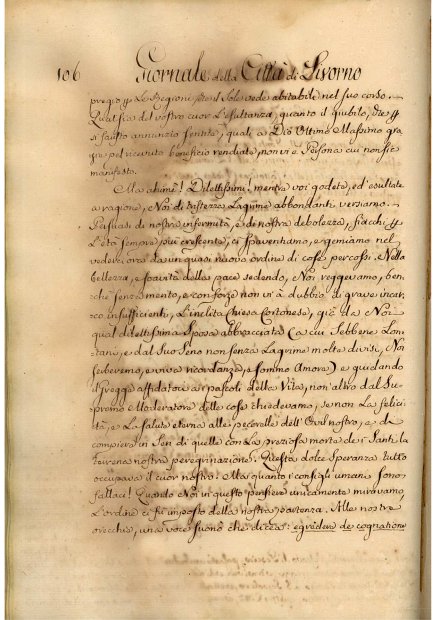 106 Giornale della Città di Livorno
pregio p Le Regioni, che il Sole vede abitabile nel suo corso.
Qual sia del vostro cuor L'esultanza, quanto il giubilo, che p
si fausto annunzio sentite, quali a Dio Ottimo Massimo gra
zie pel ricevuto beneficio rendiate, non vi è Persona cui non sie
manifesto.
Ma ahime! Dilettissimi! mentre voi godete, ed esultate
a ragione, Noi di tristezza Lagrime abbondanti versiamo.
Persuasi di nostra infermità, e di nostra debolezza, fiacchi p
L'età sempre più crescente, ci spaventiamo, e gemiamo nel
vederci ora da un quasi nuovo ordine di cose percossi. Nella
bellezza, e soavità della pace sedendo, Noi reggevamo, ben
che senza mento, e con forze non vi à dubbio di grave incar
co insufficienti, L'inclita Chiesa Cortonese, già da Noi
qual dilettissima Sposa abbracciata (a cui Sebbene Lon
tani, e dal suo Seno non senza Lagrime molte divisi, Noi
serberemo, e viva ricordanza, e sommo Amore) e guidando
il gregge affidatoci ai pascoli della Vita, non altro dal Su
premo Moderatore delle cose chiedevamo, se non La felici
tà, e La salute eterna alle pecorelle dell'Ovil nostro, e da
compiere in Sen di quelle con La preziosa morte de i Santi la
terrena nostra peregrinazione. Questa dolce Speranza tutto
occupava il cuor nostro: Ma quanto i consigli umani sono
fallaci! Quando Noi in questo pensiere unicamente miravamo,
L'ordine ci fu imposto della nostra partenza. Alle nostre
orecchie, una voce suonò che diceva: egredere de cognatione